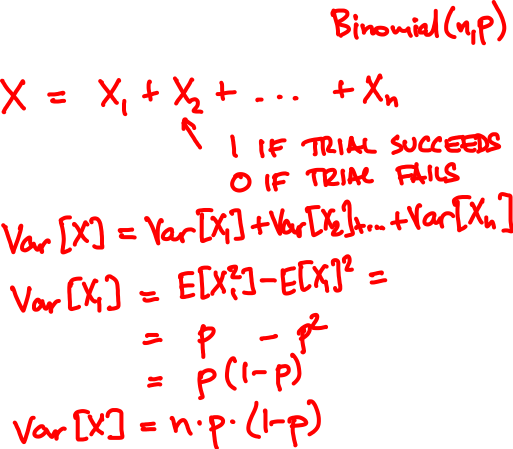 Binomial(n,p)
X = X₁ + X₂ + ... + Xₙ
1 IF TRIAL SUCCEEDS
0 IF TRIAL FAILS
Var[X] = Var[X₁]+Var[X₂]+...+Var[Xₙ]
Var[X₁] = E[X₁²]-E[X₁]² =
= p - p²
= p(1-p)
Var[X] = n·p·(1-p)